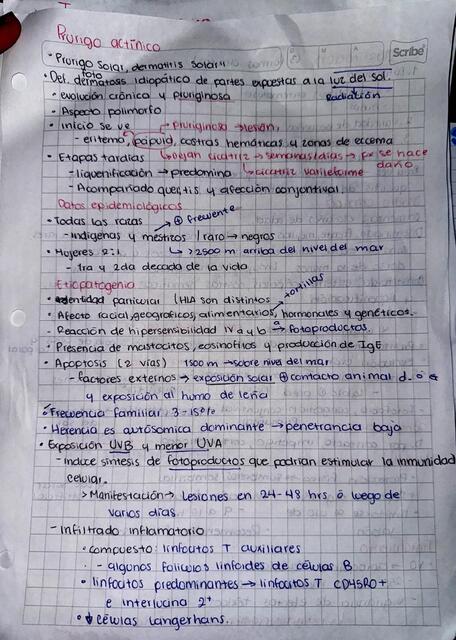 Prurigo actínico
Scribe
• Prurigo solar, dermatitis solar"
• Def. fotodermatosis idiopática de partes expuestas a la luz del sol.
• evolución crónica y pluriginosa Radiación
• Aspecto polimorfo
• Inicio se ve → pluriginosa → lesión.
- eritema, papula, costras hemáticas y zonas de eccema
• Etapas tardias → dejan cicatriz → semanas/días → px se hace daño
- liquenificación → predomina ↳ cicatriz varileforme
- Acompañado queitis y afección conjuntival.
Datos epidemiológicos
• Todas las razas ⊕ frewente
- Indígenas y mestizos / raro → negros
• Mujeres 2:1 ↳ >2500 m arriba del nivel del mar
- 1ra y 2da decada de la vida
Etiopatogenia
• Identidad particular (HLA son distintos tortillas
• Afecto racial, geográficos, alimentarios, hormonales y genéticos.
- Reacción de hipersensibilidad IV a y b → fotoproductos.
• Presencia de mastocitos, eosinofilos y producción de IgE
• Apoptosis (2 vías) 1500 m → sobre nivel del mar
- factores externos → exposición solar ⊕ contacto animal d.
y exposición al humo de leña
• Frecuencia familiar 3-15%
• Herencia es autosomica dominante → penetrancia baja
• Exposición UVB y menor UVA
- Induce sintesis de fotoproductos que podrían estimular la inmunidad
celular.
> Manifestación → Lesiones en 24-48 hrs ó luego de
varios días.
- Infiltrado inflamatorio
• compuesto: linfocitos T auxiliares
- algunos foliculos linfoides de células B
• linfocitos predominantes → linfocitos T CD45RO+
e interlucina 2+
• ↓ células langerhans.